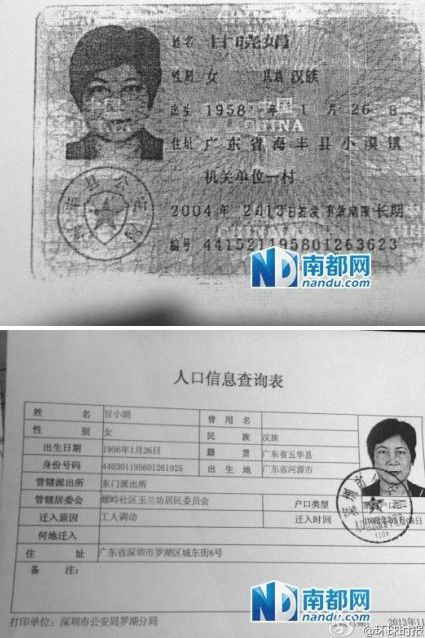 姓名 甘晓娟
性别 女 民族 汉族
出生 1958年 1 月 26 日
住址 广东省海丰县小漠镇
机关单位一村
2004年 2413日签发 有效期限 长期
编号 441521195801263623
海丰县公安局
南都网
nandu.com
人口信息查询表
姓 名 甘小娟 曾用名
性 别 女 民 族 汉族
出生日期 1956年1月26日 籍 贯 广东省五华县
身份号码 440301195601261925 出 生 地 广东省河源市
管辖派出所 东门派出所
管辖居委会 螺岭社区玉兰坊居民委员会 户口类型
迁入原因 工人调动 迁入时间
何地迁入
住 址 广东省深圳市罗湖区城东街6号
备 注：
南都网
nandu.com
打印单位：深圳市公安局罗湖分局 2013年11
@环球时报